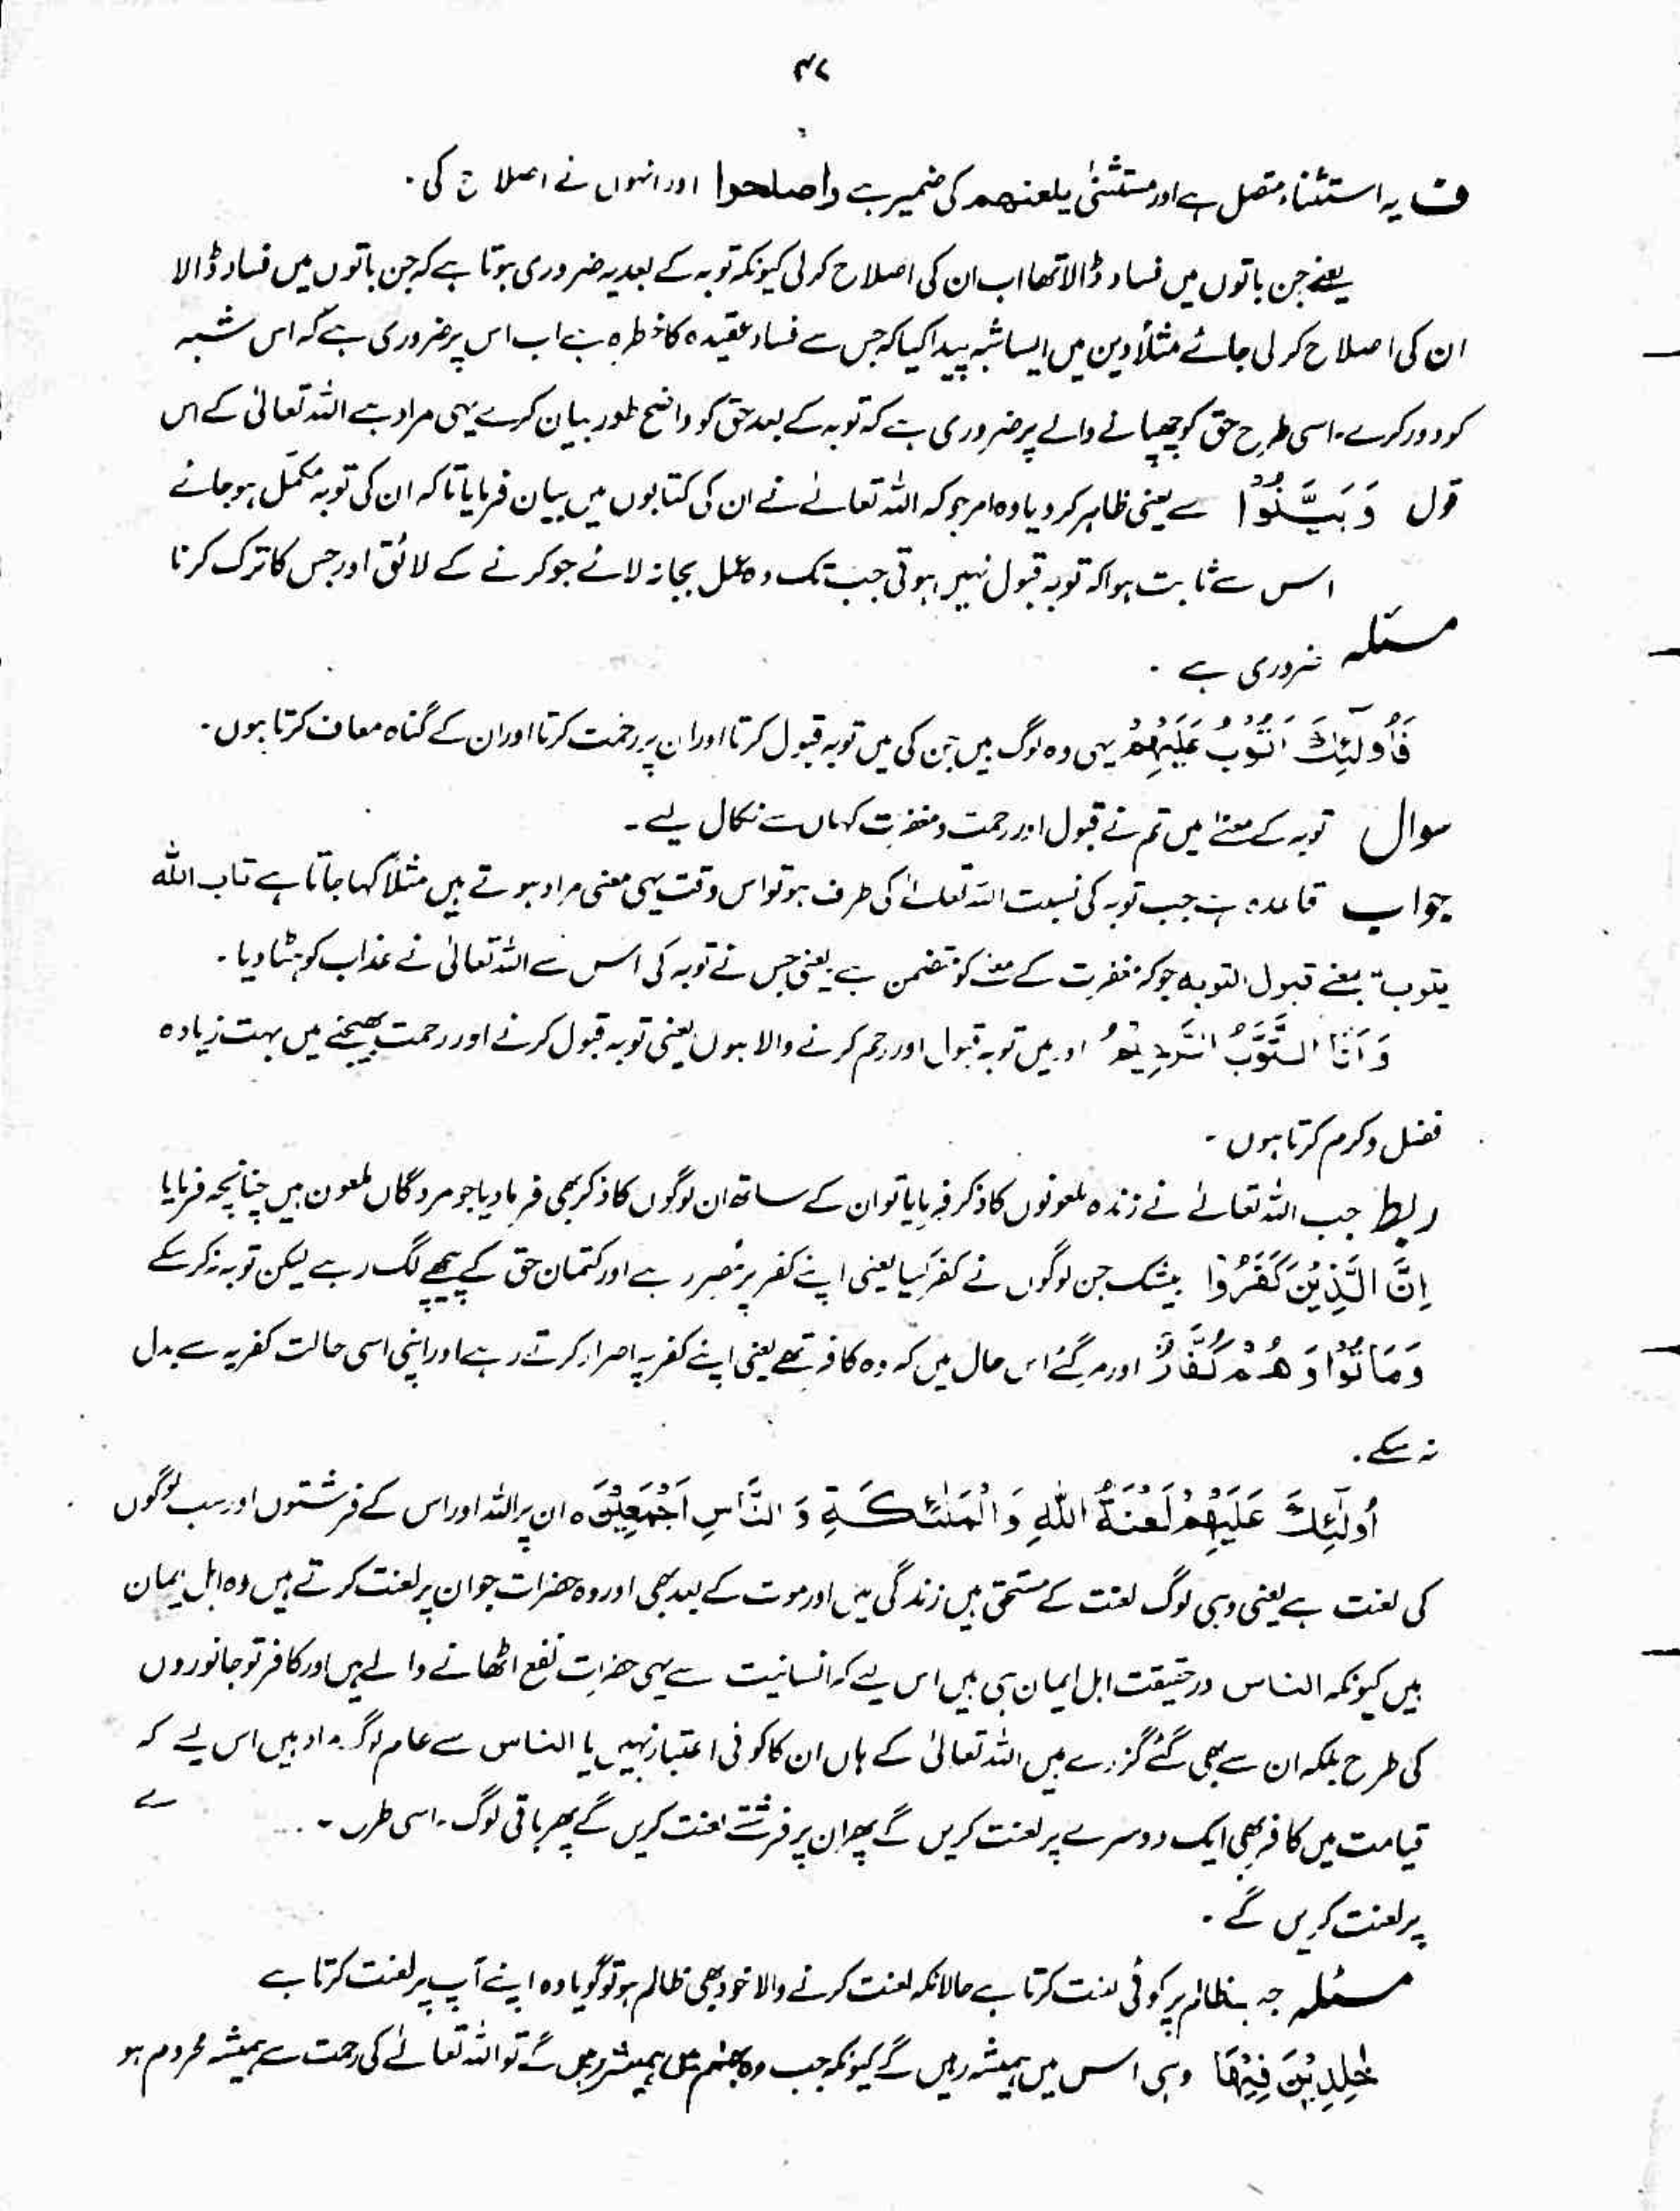 ۴۷
ف یہ استثناء متصل ہے اور مستثنیٰ یلعنھم کی ضمیر ہے واصلحوا اور انہوں نے اصلاح کی ۔
یعنے جن باتوں میں فساد ڈالا تھا اب ان کی اصلاح کر لی کیونکہ توبہ کے بعد یہ ضروری ہوتا ہے کہ جن باتوں میں فساد ڈالا
ان کی اصلاح کر لی جائے مثلاً دین میں ایسا شبہ پیدا کیا کہ جس سے فساد عقیدہ کا خطرہ ہے اب اس پر ضروری ہے کہ اس شبہ
کو دور کرے ۔ اسی طرح حق کو چھپانے والے پر ضروری ہے کہ توبہ کے بعد حق کو واضح طور بیان کرے یہی مراد ہے اللہ تعالیٰ کے اس
قول وَبَيَّنُوْا سے یعنی ظاہر کر دیا وہ امر جو کہ اللہ تعالےٰ نے ان کی کتابوں میں بیان فرمایا تاکہ ان کی توبہ مکمل ہو جائے
اس سے ثابت ہوا کہ توبہ قبول نہیں ہوتی جب تک وہ عمل بجا نہ لائے جو کرنے کے لائق اور جس کا ترک کرنا
مسئلہ ضروری ہے ۔
فَأُولٰٓئِكَ اَتُوْبُ عَلَيْهِمْ یہی وہ لوگ ہیں جن کی میں توبہ قبول کرتا اور ان پر رحمت کرتا اور ان کے گناہ معاف کرتا ہوں ۔
سوال توبہ کے معنےٰ میں تم نے قبول اور رحمت و مغفرت کہاں سے نکال لیے ۔
جواب قاعدہ ہے جب توبہ کی نسبت اللہ تعالےٰ کی طرف ہو تو اس وقت یہی معنی مراد ہوتے ہیں مثلاً کہا جاتا ہے تاب اللہ
یتوب بمعنے قبول التوبہ جو کہ مغفرت کے معنے کو متضمن ہے یعنی جس نے توبہ کی اس سے اللہ تعالیٰ نے عذاب کو ہٹا دیا ۔
وَاَنَا التَّوَّابُ الرَّحِيْمُ اور میں توبہ قبول اور رحم کرنے والا ہوں یعنی توبہ قبول کرنے اور رحمت بھیجنے میں بہت زیادہ
فضل و کرم کرتا ہوں ۔
ربط جب اللہ تعالےٰ نے زندہ ملعونوں کا ذکر فرمایا تو ان کے ساتھ ان لوگوں کا ذکر بھی فرما دیا جو مردگاں ملعون ہیں چنانچہ فرمایا
اِنَّ الَّذِيْنَ كَفَرُوْا بیشک جن لوگوں نے کفر کیا یعنی اپنے کفر پر مُصر رہے اور کتمان حق کے پیچھے لگ رہے لیکن توبہ نہ کر سکے
وَمَاتُوْا وَهُمْ كُفَّارٌ اور مر گئے اس حال میں کہ وہ کافر تھے یعنی اپنے کفر پہ اصرار کرتے رہے اور اپنی اسی حالت کفریہ سے بدل
نہ سکے ۔
اُولٰٓئِكَ عَلَيْهِمْ لَعْنَةُ اللّٰهِ وَالْمَلٰٓئِكَةِ وَالنَّاسِ اَجْمَعِيْنَ ہ ان پر اللہ اور اس کے فرشتوں اور سب لوگوں
کی لعنت ہے یعنی وہی لوگ لعنت کے مستحق ہیں زندگی میں اور موت کے بعد بھی اور وہ حضرات جو ان پر لعنت کرتے ہیں وہ اہل ایمان
ہیں کیونکہ الناس درحقیقت اہل ایمان ہی ہیں اس لیے کہ انسانیت سے یہی حضرات نفع اٹھانے والے ہیں اور کافر تو جانوروں
کی طرح بلکہ ان سے بھی گئے گزرے ہیں اللہ تعالیٰ کے ہاں ان کا کوئی اعتبار نہیں یا الناس سے عام لوگ مراد ہیں اس لیے کہ
قیامت میں کافر بھی ایک دوسرے پر لعنت کریں گے پھر ان پر فرشتے لعنت کریں گے پھر باقی لوگ ۔ اسی طرح
پر لعنت کریں گے ۔
مسئلہ جب ظالم پر کوئی لعنت کرتا ہے حالانکہ لعنت کرنے والا خود بھی ظالم ہو تو گویا وہ اپنے آپ پر لعنت کرتا ہے
خٰلِدِيْنَ فِيْهَا وہی اس میں ہمیشہ رہیں گے کیونکہ جب وہ جہنم میں ہمیشہ رہیں گے تو اللہ تعالےٰ کی رحمت سے ہمیشہ محروم ہو